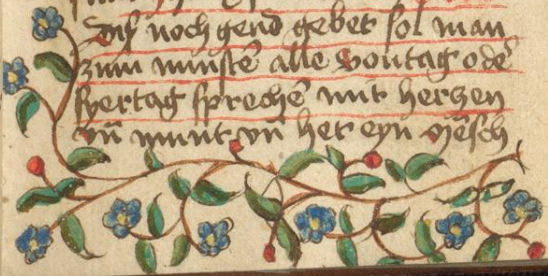 Diß noch gend gebet sol man
zum minstē alle sontag odeʳ
fyertag sprechē mit hertzen
vn̄ munt vn̄ het eyn mēsch